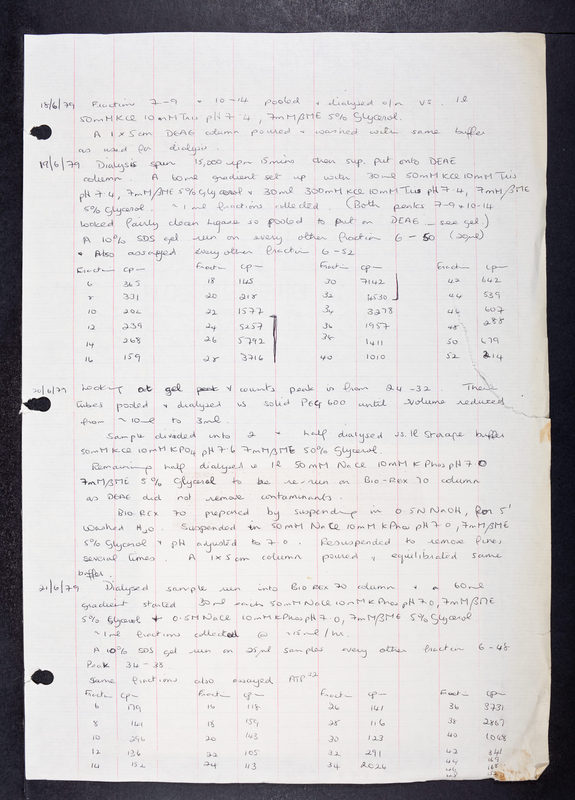 18/6/79 Fraction 7-9 + 10-14 pooled + dialysed o/n vs. 1l
50mM KCl 10mM Tris pH 7.4, 7mM βME 5% Glycerol.
A 1x5cm DEAE column poured + washed with same buffer
as used for dialysis.
19/6/79 Dialysis spun 15,000 rpm 15mins then sup. put onto DEAE
column. A 60ml gradient set up with 30ml 50mM KCl 10mM Tris
pH 7.4, 7mM βME 5% Glycerol + 30ml 300mM KCl 10mM Tris pH 7.4, 7mM βME
5% Glycerol. ~1ml fractions collected. (Both peaks 7-9 + 10-14
looked fairly clean ligase so pooled to put on DEAE - see gel)
A 10% SDS gel run on every other fraction 6-50 (25μl)
+ Also assayed every other fraction 6-52
Fraction cpm Fraction cpm Fraction cpm Fraction cpm
6 365 18 145 30 7142 42 642
8 331 20 218 32 4530 44 539
10 202 22 1577 34 3278 46 607
12 239 24 5257 36 1957 48 288
14 268 26 5792 38 1411 50 679
16 159 28 3716 40 1010 52 214
20/6/79 Looking at gel peak + counts peak is from 24-32. These
tubes pooled + dialysed vs solid PEG 600 until volume reduced
from ~10ml to 3ml.
Sample divided into 2 + half dialysed vs. 1l Storage buffer
50mM KCl 10mM KPO4 pH 7.6 7mM βME 50% Glycerol.
Remaining half dialysed 1l 50mM NaCl 10mM K Phos pH 7.0
7mM βME 5% Glycerol to be re-run on Bio-Rex 70 column
as DEAE did not remove contaminants.
Bio Rex 70 prepared by suspending in 0.5N NaOH, for 5'
Washed H2O. Suspended in 50mM NaCl 10mM K Phos pH 7.0, 7mM βME
5% Glycerol + pH adjusted to 7.0. Resuspended to remove fines
several times. A 1x5cm column poured + equilibrated same
buffer.
21/6/79 Dialysed sample run into Bio Rex 70 column + a 60ml
gradient started 30ml each 50mM NaCl 10mM K Phos pH 7.0, 7mM βME
5% Glycerol + 0.5M NaCl 10mM K Phos pH 7.0, 7mM βME 5% Glycerol
~1ml fractions collected @ ~15ml/hr.
A 10% SDS gel run on 25μl samples every other fraction 6-48
Peak 34-38.
Same fractions also assayed ATP32
Fraction cpm Fraction cpm Fraction cpm Fraction cpm
6 179 16 118 26 141 36 3731
8 141 18 159 28 116 38 2867
10 296 20 143 30 123 40 1068
12 136 22 105 32 291 42 341
14 152 24 113 34 2026 44 169
46 168
48